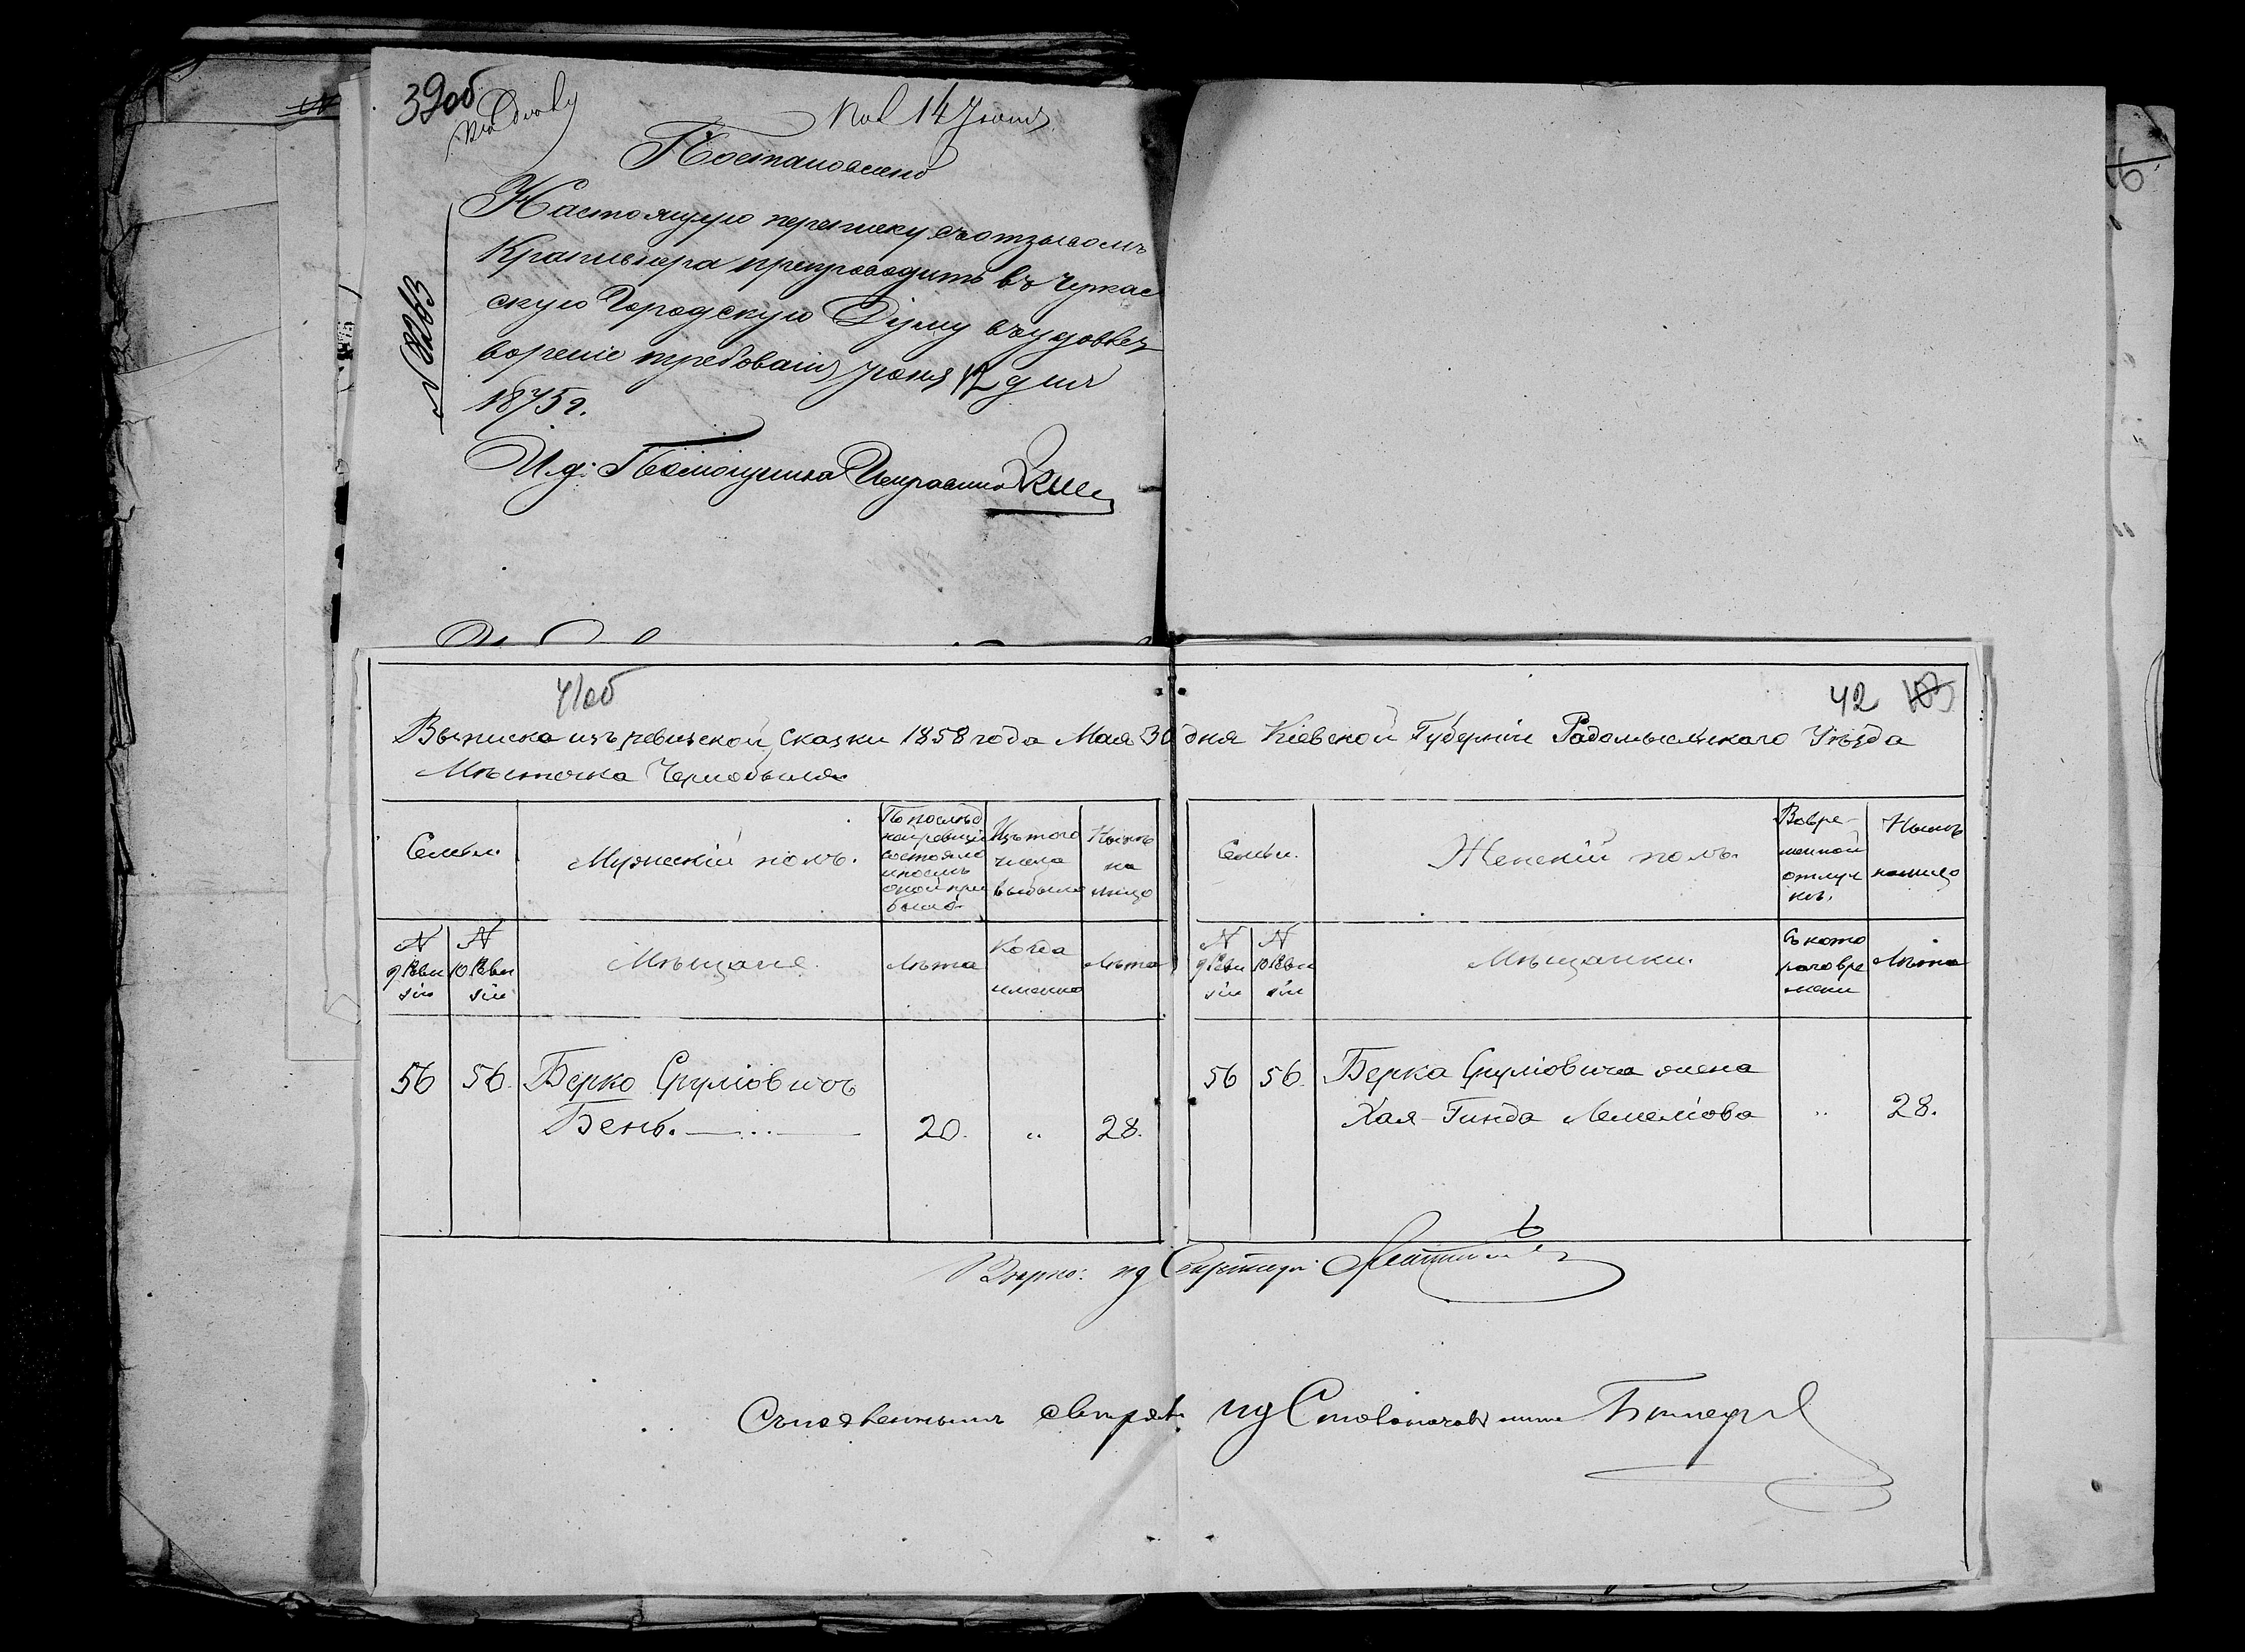 39об
14 Іюня
Постановлено
Настоящую переписку съ отзывомъ
препроводить въ Черкас
скую Городскую Думу въ удовлет
вореніе требованія Іюня 12 дня
1875 г.
И.д: Помощника Исправника
41об
42 103
Выписка изъ ревизской сказки 1858 года Мая 30 дня Кіевской Губерніи Радомысльскаго Уѣзда
Мѣстечка Чернобыля
Семьи.
Мужескій полъ.
По послѣд
ней ревизіи
состояло
и послѣ
оной при
было.
Изъ того
числа
выбыло
Нынѣ
на
лицо
Семьи.
Женскій полъ.
Вовре-
менной
отлуч
кѣ.
Нынѣ
налицо
N
9 Реви
зіи
N
10 Реви
зіи
Мѣщане.
Лѣта
Когда
именно
Лѣта
N
9 Реви
зіи
N
10 Реви
зіи
Мѣщанки.
Съ кото
раго вре
мени
Лѣта
56 56. Берко Сруліовичъ
Бенб. 20. " 28.
56 56. Берка Сруліовича жена
Хая-Гинда Лемеліова " 28.
Вѣрно: ид Секретаря
Съ подленнымъ свѣрялъ: ид Столоначальника